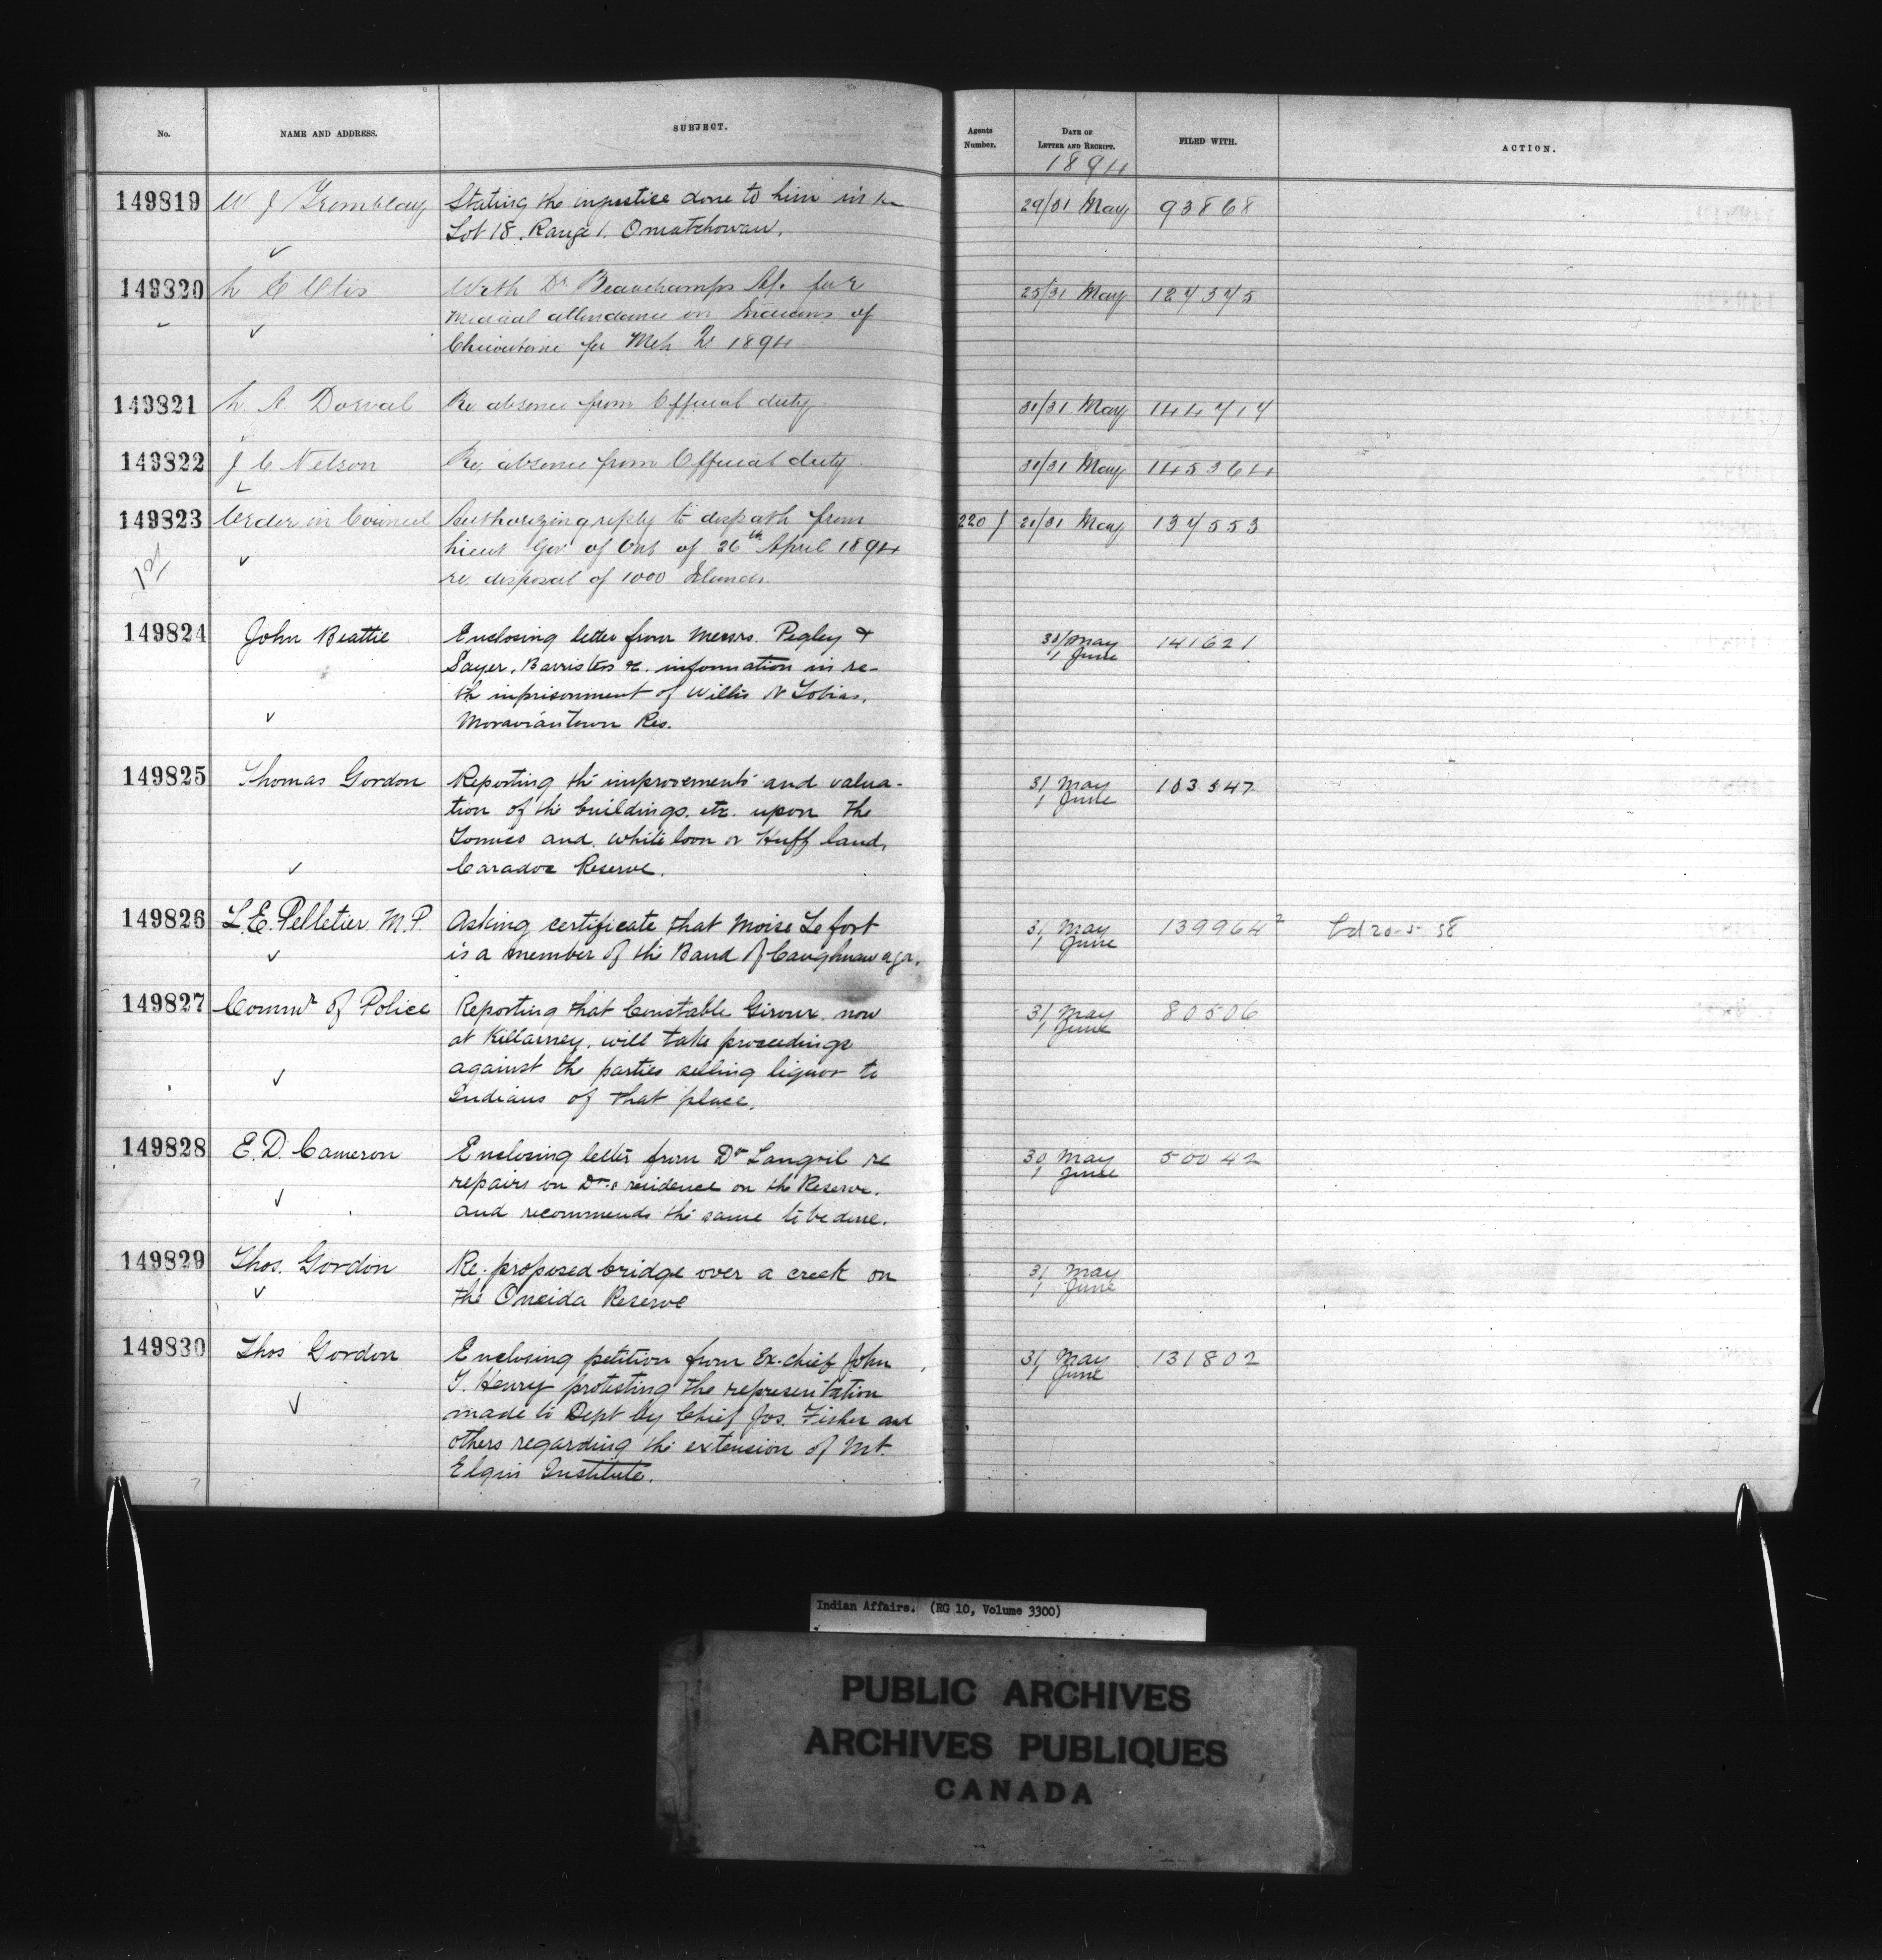 No. NAME AND ADDRESS. SUBJECT. Agents Number. DATE OF LETTER AND RECEIPT. FILED WITH. ACTION.
1894
149819 W. J. Tremblay Stating the injustice done to him in re 29/31 May 93868
Lot 18. Range 1. Omatchowan.
149820 L E Otis With Dr Beauchamps A/c for 25/31 May 124345
medical attendance on Indians of
for Mch 1894
149821 L. A. Dorval Re absence from Official duty 31/31 May 144717
149822 J. C. Nelson Re. absence from Official duty 31/31 May 145364
149823 Order in Council Authorizing reply to dispath from 220 J 21/31 May 134553
Lieut Gov. of Ont of 26th April 1894
re. disposal of 1000 Islands.
149824 John Beattie Enclosing letter from Messrs. Pegley & 30/May 1 June 141621
Sayer, Barristers &c. information in re-
th inprisonment of Willis N Tobias,
Moraviantown Res.
149825 Thomas Gordon Reporting the improvements and valua- 31 May 1 June 103547
tion of the buildings. etc. upon the
Tomico and Whiteloon or Huff land,
Caradoc Reserve.
149826 L.E. Pelletier M.P. Asking certificate that Moise Lefort 31 May 1 June 139964² 20-5-58
is a member of the Band of Caughnawaga.
149827 Commr of Police Reporting that Constable Giroux, now 31 May 1 June 80506
at Killarney, will take proceedings
against the parties selling liquor to
Indians of that place.
149828 E. D. Cameron Enclosing letter from Dr Langril re 30 May 1 June 50042
repairs on Dr.s residence on the Reserve.
and recommends the same to be done.
149829 Thos. Gordon Re. proposed bridge over a creek on 31 May 1 June
the Oneida Reserve
149830 Thos Gordon Enclosing petition from Ex-chief John 31 May 1 June 131802
T. Henry protesting the representation
made to Dept by Chief Jos. Fisher and
others regarding the extension of Mt.
Elgin Institute.
Indian Affairs. (RG 10, Volume 3300)
PUBLIC ARCHIVES
ARCHIVES PUBLIQUES
CANADA